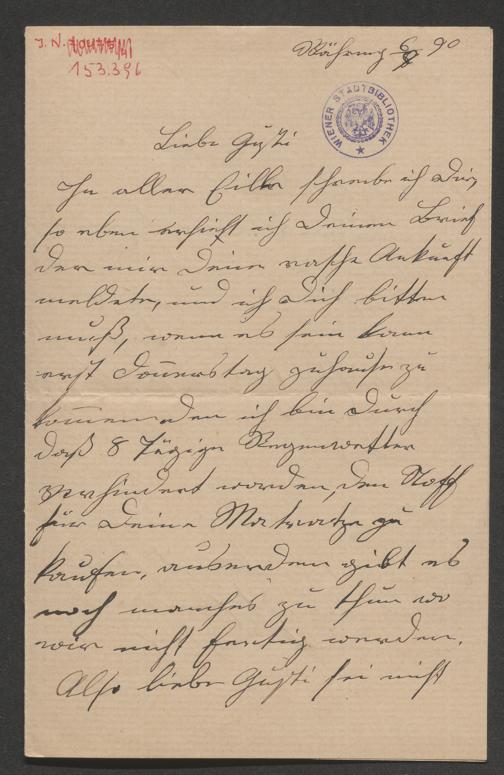 J. N.
153.396
Währing 90
WIENER STADTBIBLIOTHEK
Liebe Gusti
In aller Eille schreibe ich Dir,
so eben erhielt ich Deinen Brief
der mir Deine rasche Ankunft
meldete, und ich Dich bitten
muß, wenn es sein kann
erst Donnerstag zuhause zu
kommen, den ich bin durch
daß 8 Tägige Regenwetter
verhindert worden, den Stoff
für Deine Matratze zu
kaufen, auserdem gibt es
noch manches zu thun wo
wir nicht fertig werden.
Also liebe Gusti sei nicht